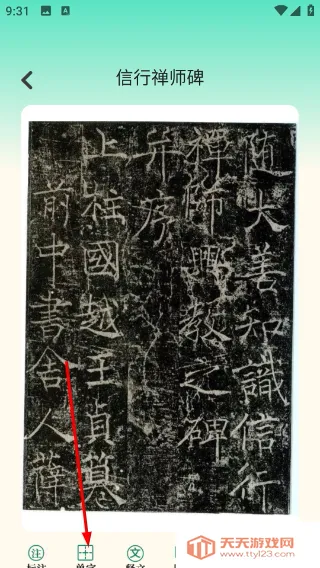 9:31
信行禅师碑
随大善知識信行
禪師興教之碑
并序
上柱國越王貞篡
前中書舍人薛
注
标注
单字
文
释文
天天游戏网
www.ttyl23.com